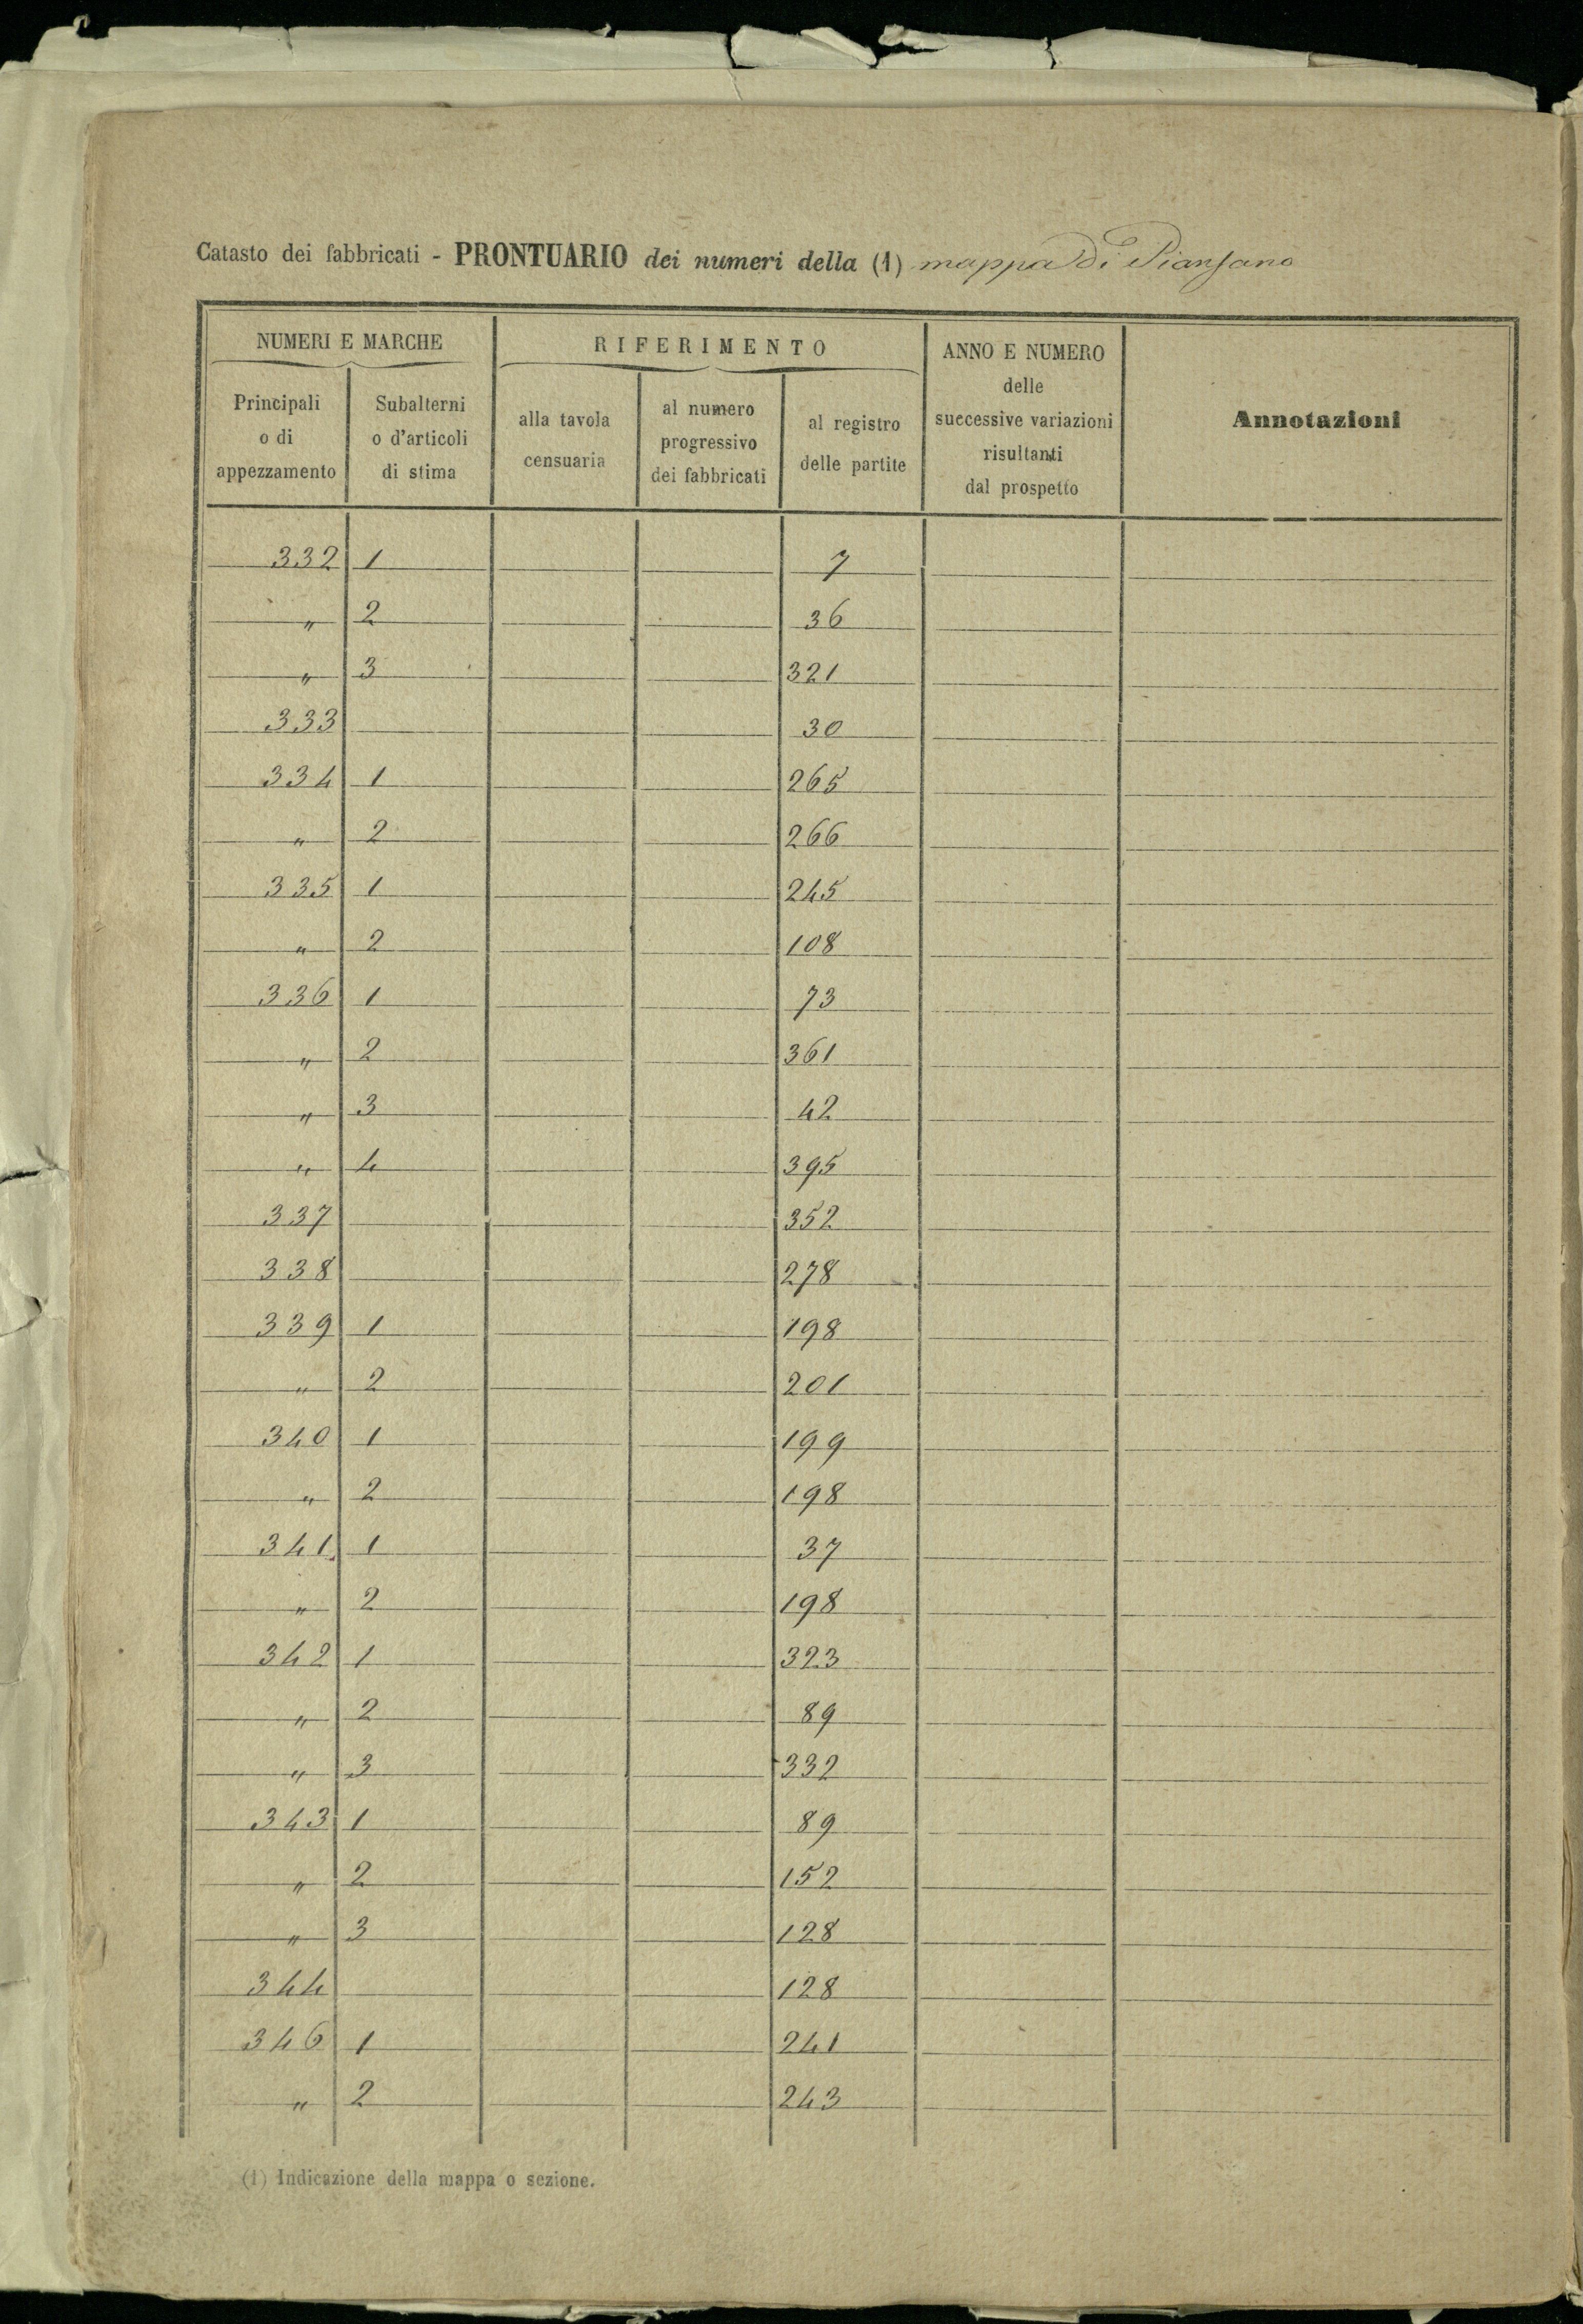 Catasto dei fabbricati - PRONTUARIO dei numeri della (1) mappa di Piansano
NUMERI E MARCHE
Principali
o di
appezzamento
Subalterni
o d'articoli
di stima
RIFERIMENTO
alla tavola
censuaria
al numero
progressivo
dei fabbricati
al registro
delle partite
ANNO E NUMERO
delle
successive variazioni
risultanti
dal prospetto
Annotazioni
332 1 7
" 2 36
" 3 321
333 30
334 1 265
" 2 266
335 1 245
" 2 108
336 1 73
" 2 361
" 3 42
" 4 395
337 352
338 278
339 1 198
" 2 201
340 1 199
" 2 198
341 1 37
" 2 198
342 1 323
" 2 89
" 3 332
343 1 89
" 2 152
" 3 128
344 128
346 1 241
" 2 243
(1) Indicazione della mappa o sezione.